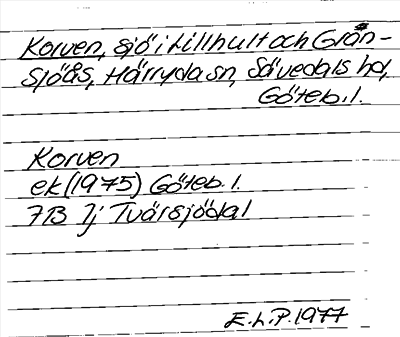 Korven, sjö i Lillhult och Grån-
sjöås, Härryda sn, Sävedals hd,
Göteb. l.
Korven
ek (1975) Göteb. l.
7B 7j Tvärsjödal
E.L.P. 1977